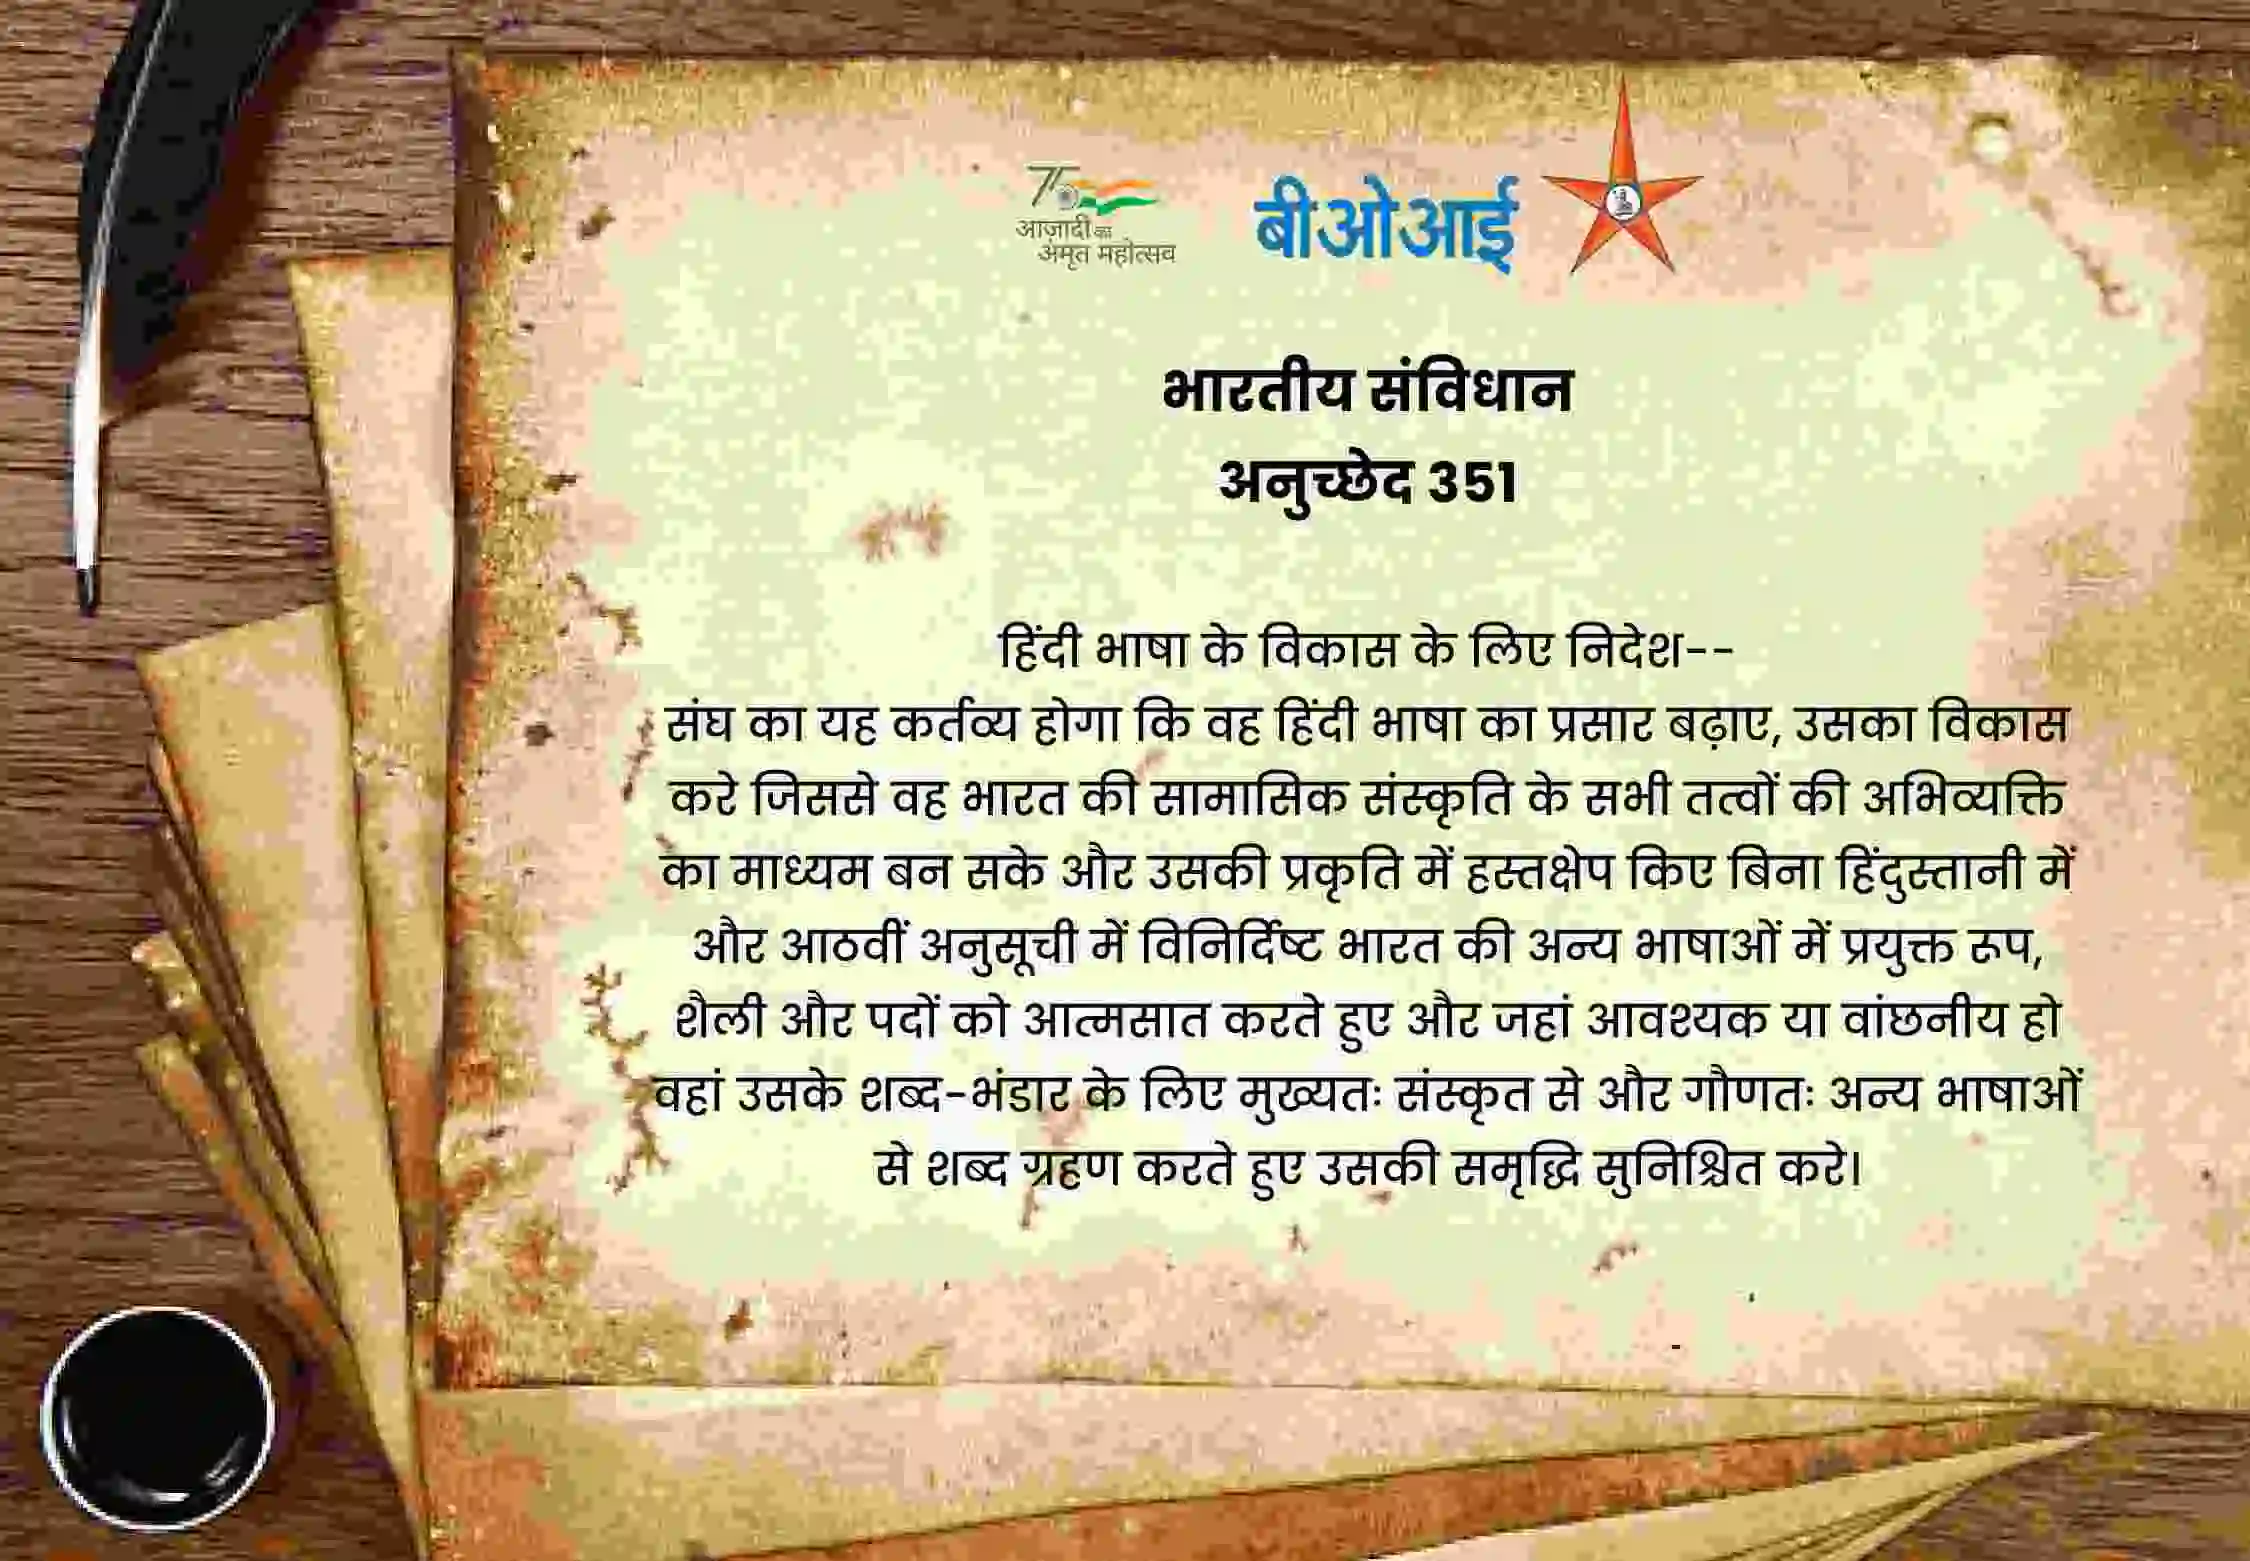 75
आज़ादी का
अमृत महोत्सव
बीओआई
भारतीय संविधान
अनुच्छेद 351
हिंदी भाषा के विकास के लिए निदेश--
संघ का यह कर्तव्य होगा कि वह हिंदी भाषा का प्रसार बढ़ाए, उसका विकास
करे जिससे वह भारत की सामासिक संस्कृति के सभी तत्वों की अभिव्यक्ति
का माध्यम बन सके और उसकी प्रकृति में हस्तक्षेप किए बिना हिंदुस्तानी में
और आठवीं अनुसूची में विनिर्दिष्ट भारत की अन्य भाषाओं में प्रयुक्त रूप,
शैली और पदों को आत्मसात करते हुए और जहां आवश्यक या वांछनीय हो
वहां उसके शब्द-भंडार के लिए मुख्यतः संस्कृत से और गौणतः अन्य भाषाओं
से शब्द ग्रहण करते हुए उसकी समृद्धि सुनिश्चित करे।